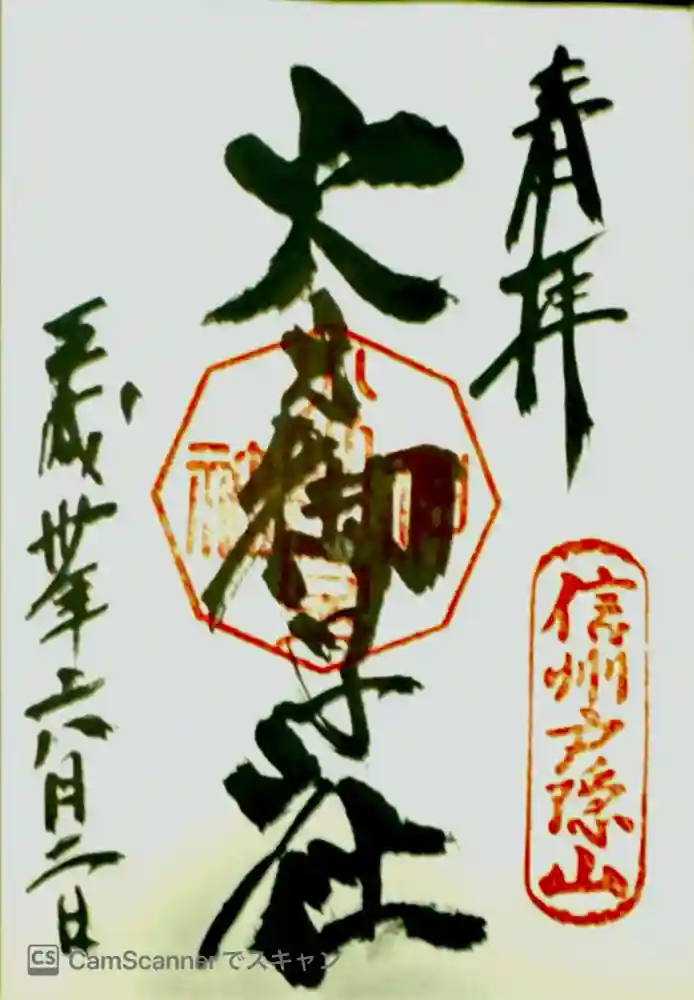 奉拝
信州戸隠山
火之御子社
平成卅年八月二日
CamScannerでスキャン